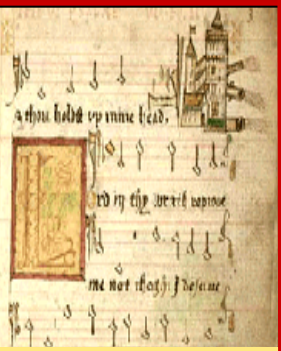 thou holdst vp mine head,
rd in thy wrath reprove
me not though I deserue